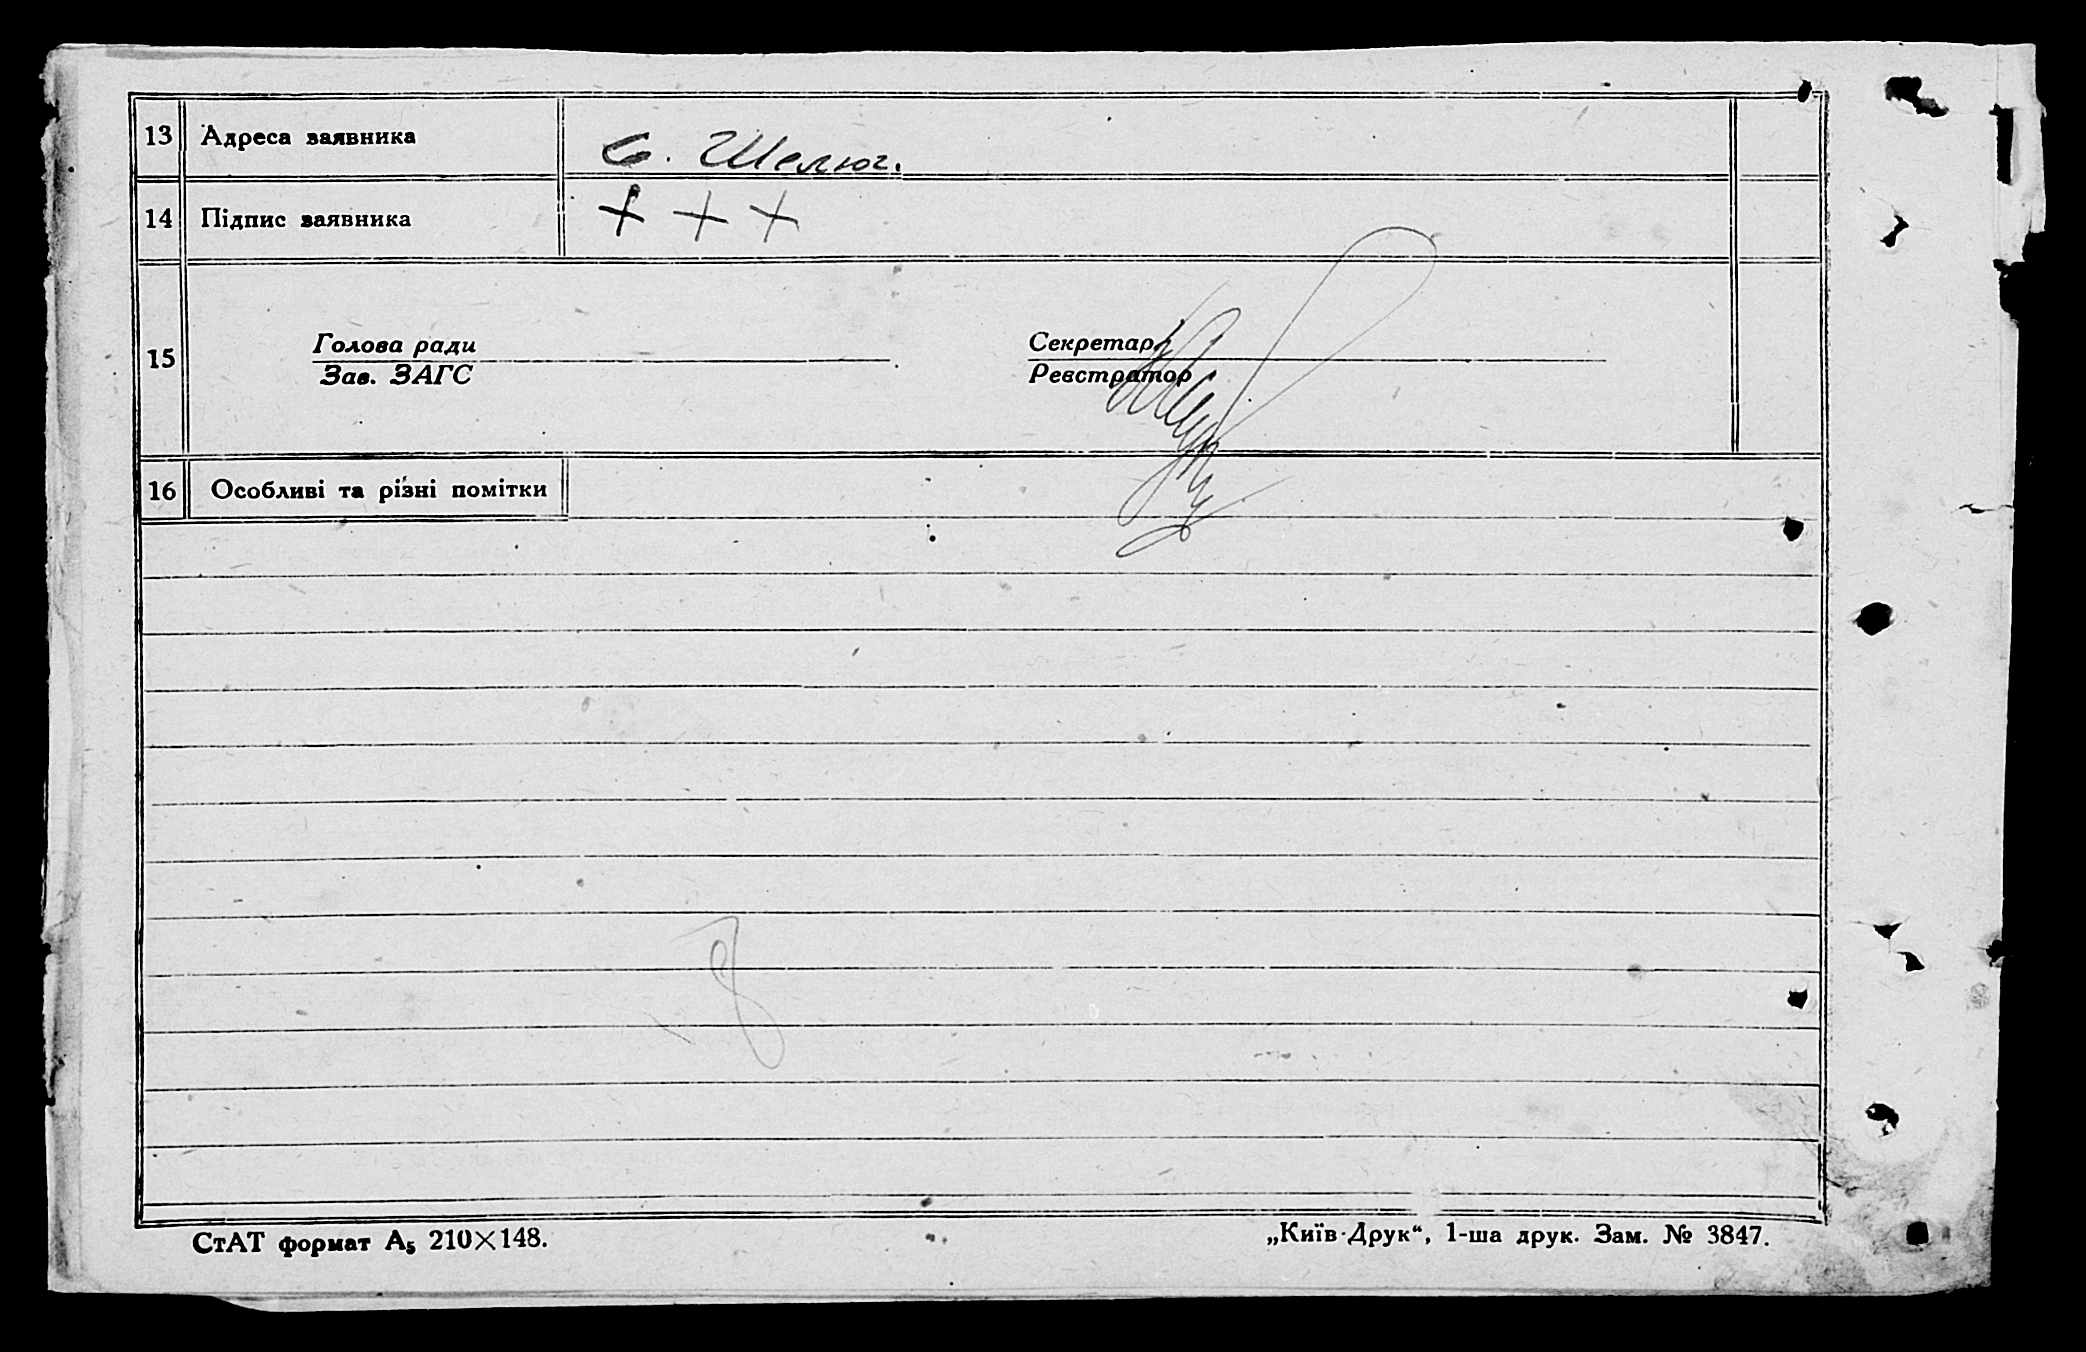 13 Адреса заявника с. Шелюг.
14 Підпис заявника + + +
15 Голова ради Секретар
Зав. ЗАГС Реєстратор
16 Особливі та різні помітки
СтАТ формат А₅ 210×148. „Київ-Друк“, 1-ша друк. Зам. № 3847.